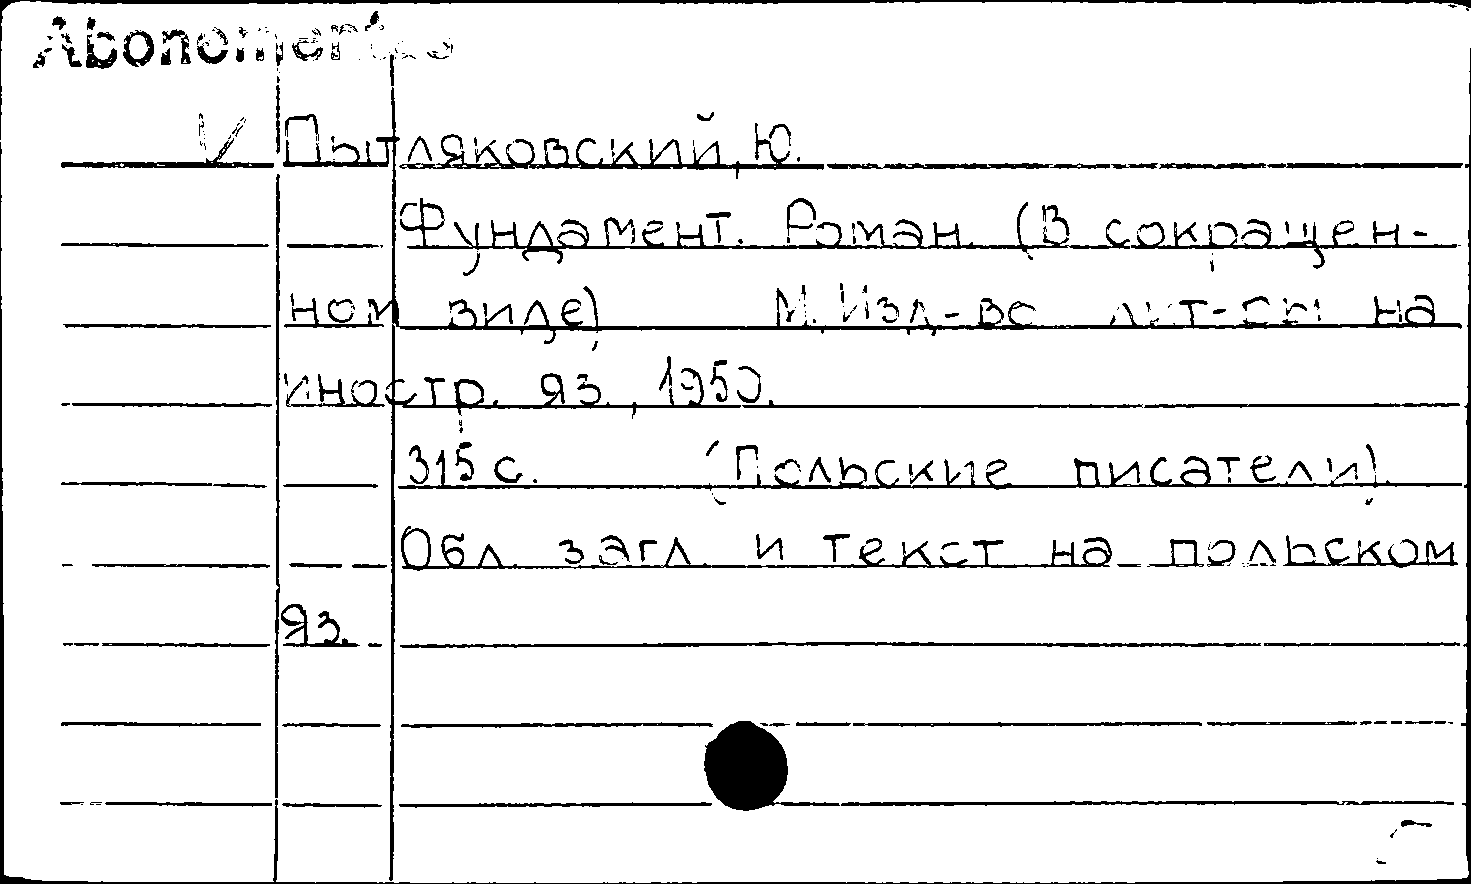 Abonementas
Пытляковский, Ю.
Фундамент. Роман. (В сокращен-
ном виде) М. Изд-во лит-ры на
иностр. яз., 1950.
315 с. (Польские писатели).
Обл. загл. и текст на польском
яз.